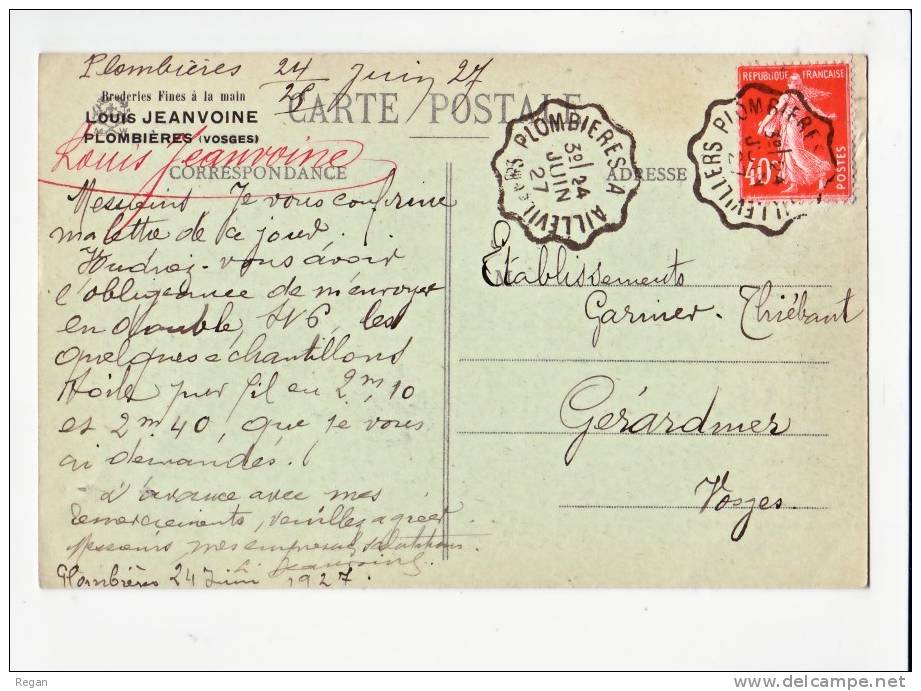 Plombières 24 Juin 27
28
Broderies Fines à la main
LOUIS JEANVOINE
PLOMBIÈRES (VOSGES)
CARTE POSTALE
Louis Jeanvoine
CORRESPONDANCE
ADRESSE
PLOMBIERES A AILLEVILLERS
3º/24
JUIN
27
REPUBLIQUE FRANÇAISE
40
POSTES
Messieurs Je vous confirme
ma lettre de ce jour.
Voudriez-vous avoir
l'obligeance de m'envoyer
en double, les
quelques échantillons
toile pur fil en 2m,10
et 2m40, que je vous
ai demandés.
D'avance avec mes
remerciements, veuillez agréer
Messieurs mes empressées salutations.
L. Jeanvoine
Plombières 24 Juin 1927.
Etablissements
Garnier-Thiébaut
Gérardmer
Vosges
Regan
delcampe.net